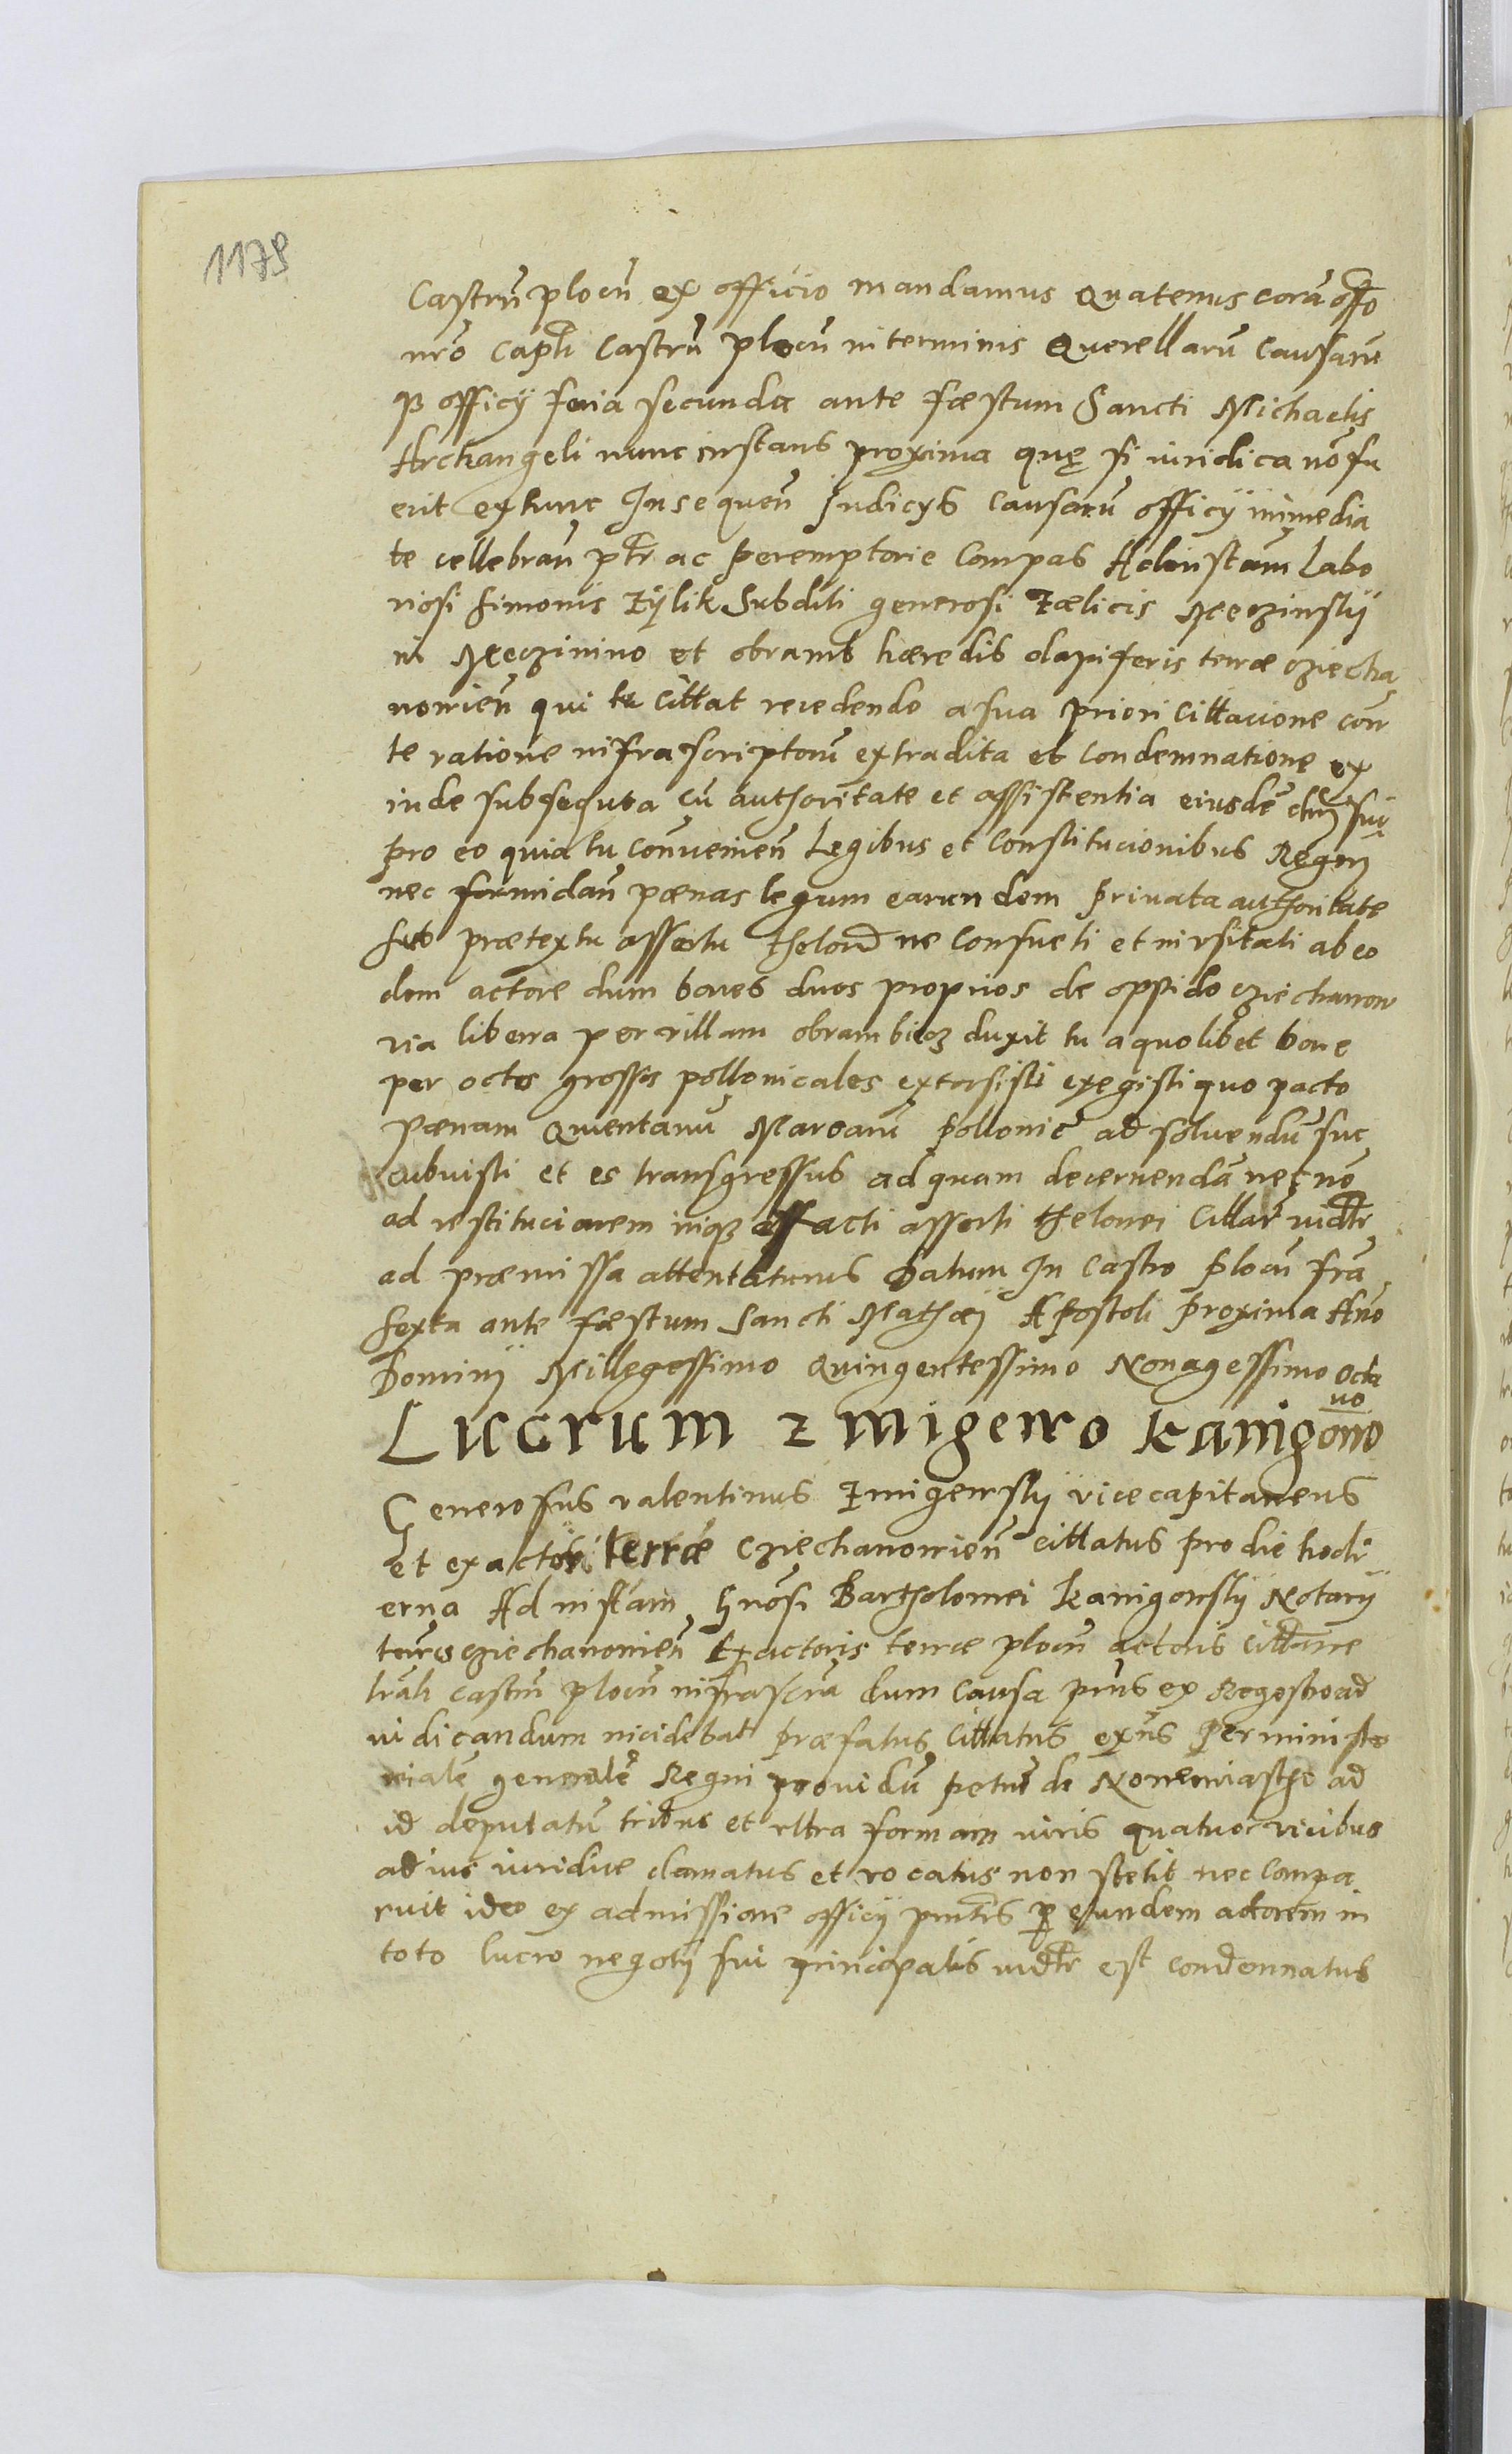 1179
Castrn̄ plocn̄ ex officio mandamus Quatenus corā offo
nr̄o Capth Castrn̄ plocn̄ in terminis Querellarū Causarū
qȝ officÿ feria secunda ante fæstum Sancti Michaelis
Archangeli nunc instans proxima quę si iuridica nō fu
erit extunc Insequen̄ Judicÿs Causarū officÿ immedia
te cellebran̄ ptr ac peremptorie Compas Ad instam Labo
riosi Simonis Zÿlik Subditi generosi Fælicis Meczinskÿ
in Meczinino et obramb hæredis dapiferis terræ cziecha
novien̄ qui te Cittat recedendo a sua priori Cittacione con
te ratione infrascriptorū extradita et Condemnatione ex
inde subsequta cū authoritate et assistentia eiusdē dni sui
pro eo quia tu Convenien̄ Legibus et Constitucionibus Regni
nec formidan̄ pænas legum earundem privata authoritate
sub prætextu assertu thelon̄ ne Consueti et inusitati ab eo
dem actore dum boves duos proprios de oppido cziechanow
via libera per villam obrambiecz duxit tu a quolibet bove
per octo grossos pollonicales extorsisti exegisti quo pacto
Pænam Quentanū Marcarū pollonic̄ ad solvendū suc
cubuisti et es transgressus ad quam decernendā nec nō
ad restitucionem iniqȝ effacti asserti thelonei Cittar̄ iudtr
ad præmissa attentaturus Datum In Castro plocn̄ fr̄a
sexta ante fæstum Sancti Mathæi Apostoli proxima Año
Dominÿ Millegessimo Quingentessimo Nonagessimo Octa
vo
Lucrum Zmigewo Kanigowo
Generosus valentinus Zmigewskÿ vicecapitaneus
et exactor terræ Cziechanowien̄ cittatus pro die hodi
erna Ad instām Gnosi Bartholomei Kanigowskÿ Notarÿ
terrs cziechanowien̄ Exactoris terræ plocn̄ actoris Cittanne
lrāli castrn̄ plocn̄ infrascrā dum causa prns ex Regestro ad
iudicandum incidebat præfatus Cittatus exns per ministe
rialē generalē Regni providū petrū de Nowemiastho ad
id deputatū tribus et ultra formam iuris quatuor vicibus
ad ius iuridice clamatus et vocatus non stetit nec Compa
ruit ideo ex admissione officÿ prntis p eundem actorem in
toto lucro negotÿ sui principalis iudtr est condemnatus